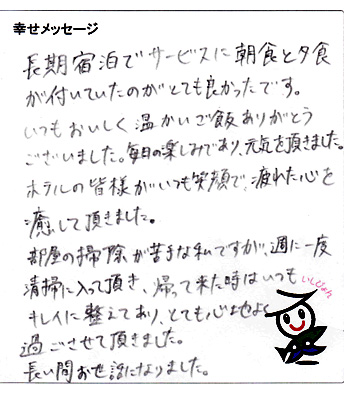 幸せメッセージ
長期宿泊でサービスに朝食と夕食
が付いていたのがとても良かったです。
いつもおいしく温かいご飯ありがとう
ございました。毎日の楽しみであり、元気を頂きました。
ホテルの皆様がいつも笑顔で、疲れた心を
癒して頂きました。
部屋の掃除が苦手な私ですが、週に一度
清掃に入って頂き、帰って来た時はいつも
キレイに整えてあり、とても心地よく
過ごさせて頂きました。
長い間お世話になりました。